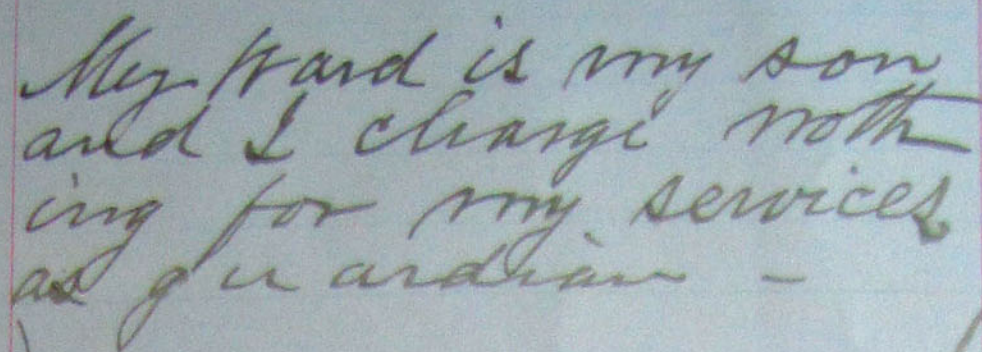 My Ward is my son
and I charge noth
ing for my services
as guardian -